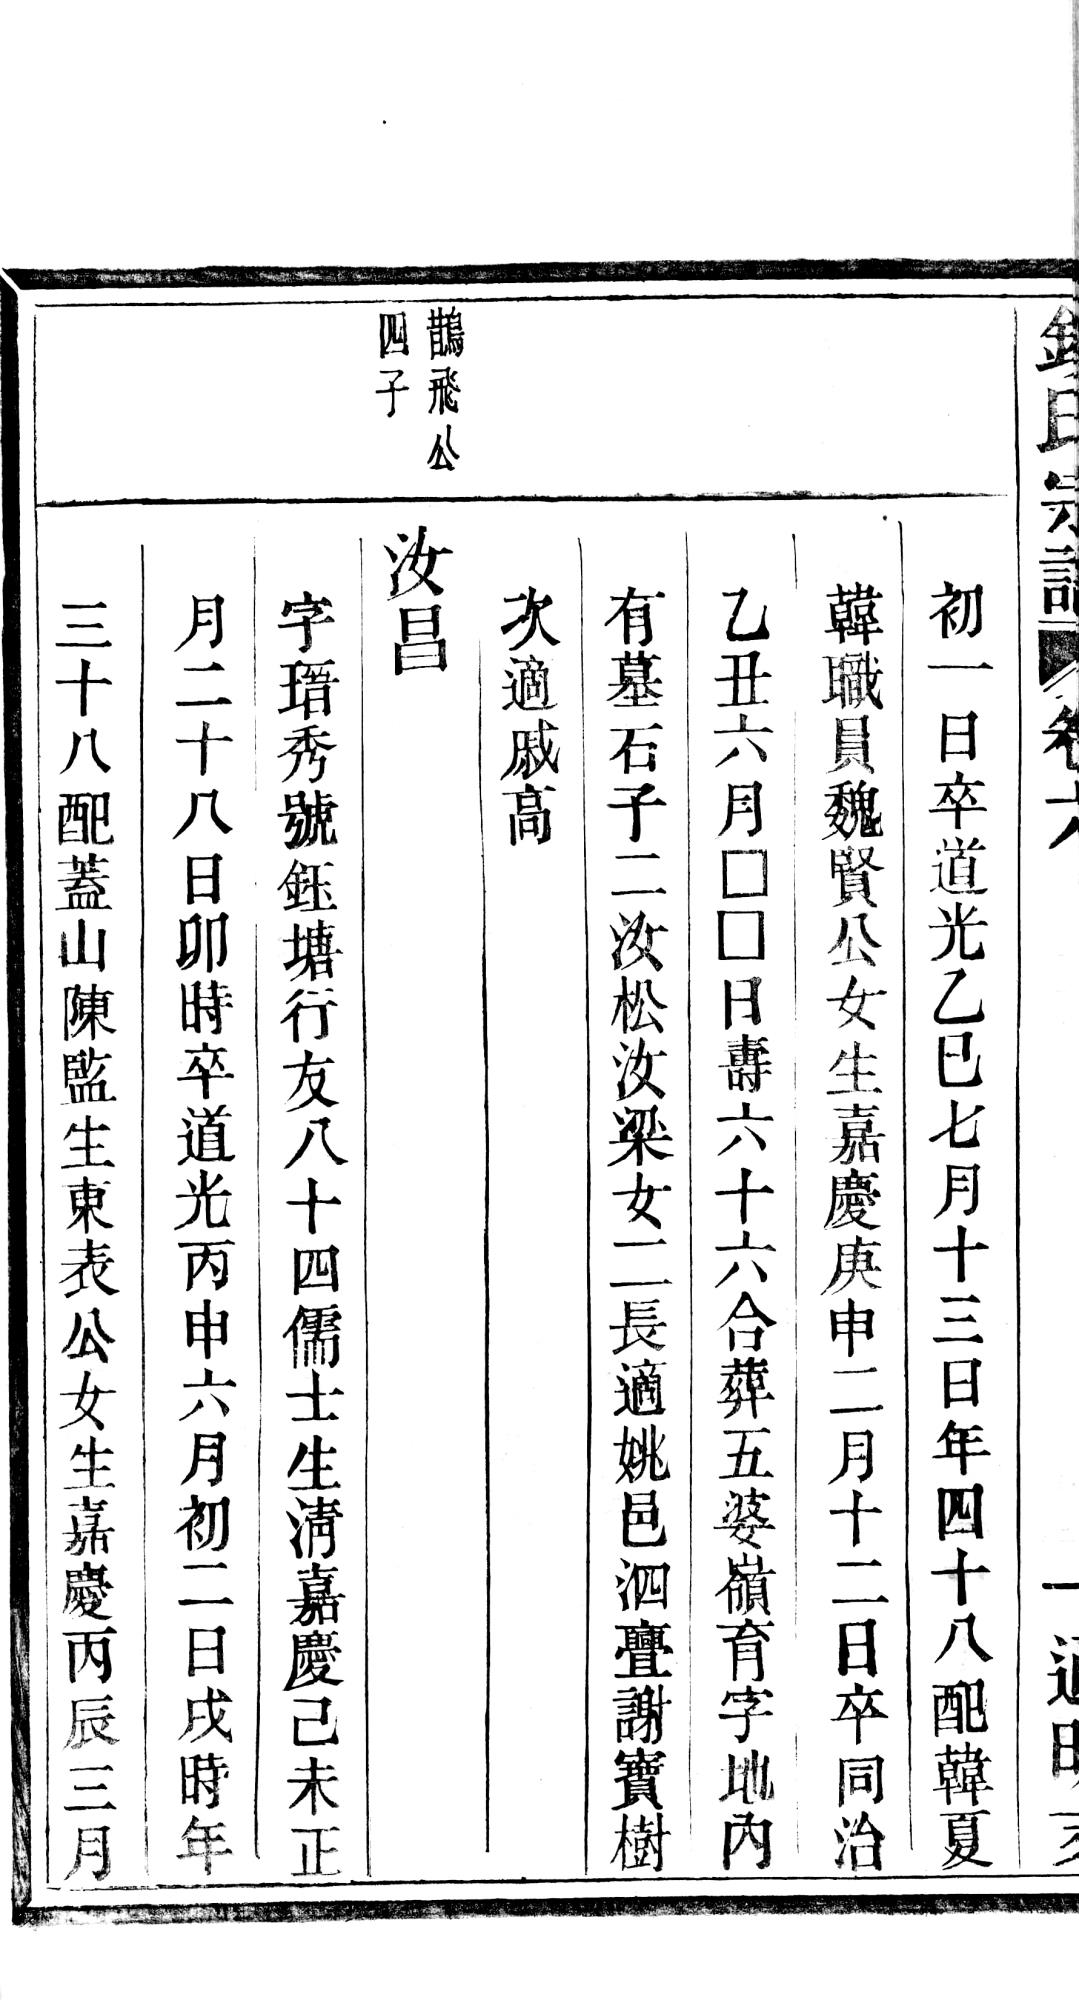 氏宗譜 卷六
初一日卒道光乙巳七月十三日年四十八配韓夏
韓職員魏賢公女生嘉慶庚申二月十二日卒同治
乙丑六月□□日壽六十六合葬五婆嶺育字地內
有墓石子二汝松汝梁女二長適姚邑泗疊謝寶樹
次適戚高
鵲飛公
四子
汝昌
字琣秀號鈺塘行友八十四儒士生淸嘉慶己未正
月二十八日卯時卒道光丙申六月初二日戌時年
三十八配蓋山陳監生東表公女生嘉慶丙辰三月